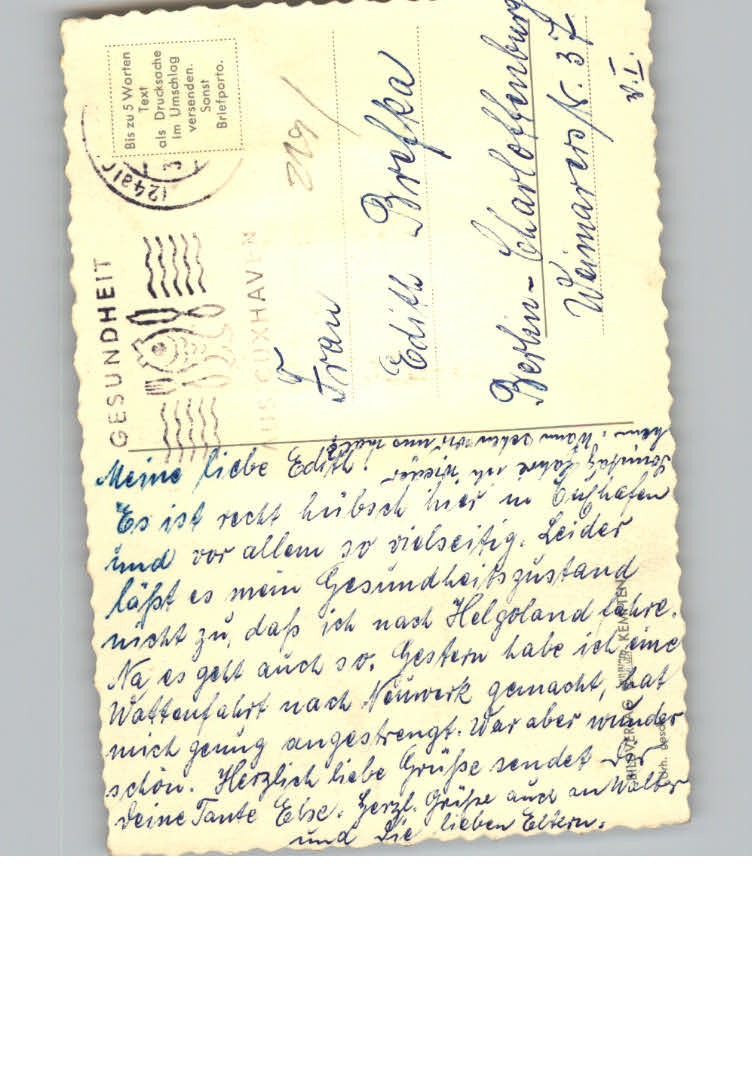 Bis zu 5 Worten
Text
als Drucksache
im Umschlag
versenden.
Sonst
Briefporto.
(24a) C
3
GESUNDHEIT
AUS CUXHAVEN
219/
Frau
Edith Brefka
Berlin-Charlottenburg
Weimarerstr. 37
v. I.
Meine liebe Edith!
Es ist recht hübsch hier in Cuxhafen
und vor allem so vielseitig. Leider
läßt es mein Gesundheitszustand
nicht zu, daß ich nach Helgoland fahre.
Na, es geht auch so. Gestern habe ich eine
Wattenfahrt nach Neuwerk gemacht, hat
mich genug angestrengt. War aber wunder
schön. Herzlich liebe Grüße sendet Dir
Deine Tante Else. Herzl. Grüße auch an Walter
und Die lieben Eltern.
Sonntag fahre ich wieder
heim. Wann sehen wir uns mal?
BILDVERLAG KEMPTEN
Urh. gesch.